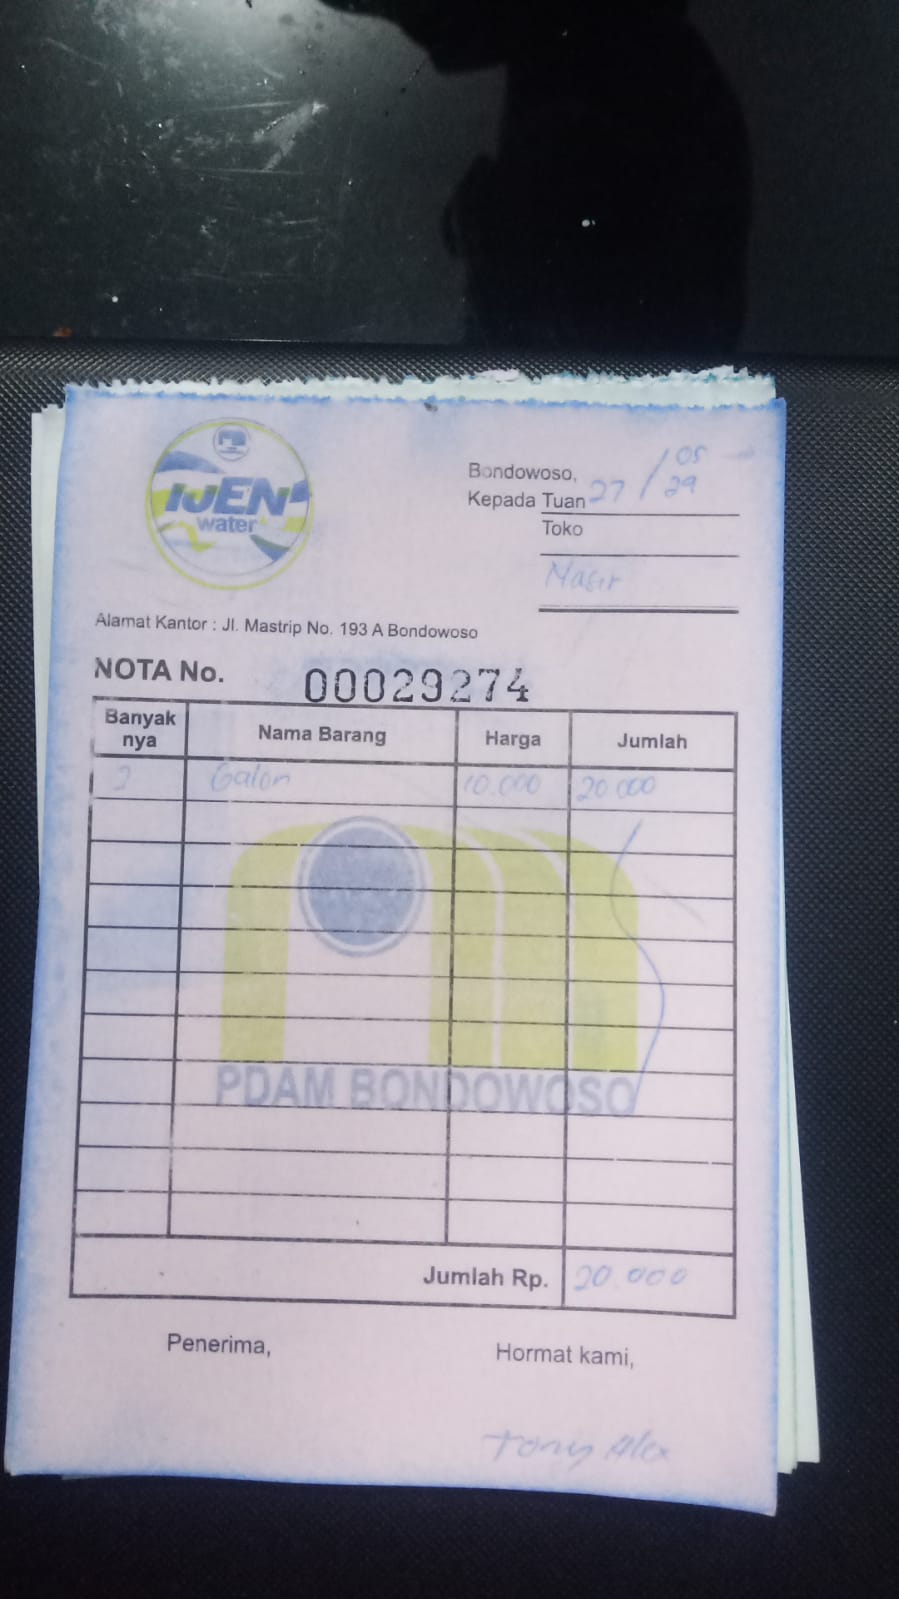 IJEN
water
Bondowoso, 27/05
Kepada Tuan 29
Toko
Nasir
Alamat Kantor : Jl. Mastrip No. 193 A Bondowoso
NOTA No. 00029274
Banyak nya Nama Barang Harga Jumlah
2 Galon 10.000 20.000
PDAM BONDOWOSO
Jumlah Rp. 20.000
Penerima, Hormat kami,
Tony Alex